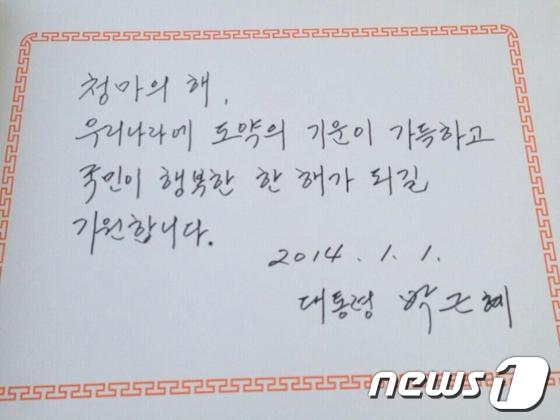 청마의 해,
우리나라에 도약의 기운이 가득하고
국민이 행복한 한 해가 되길
기원합니다.
2014. 1. 1.
대통령 박근혜
news1